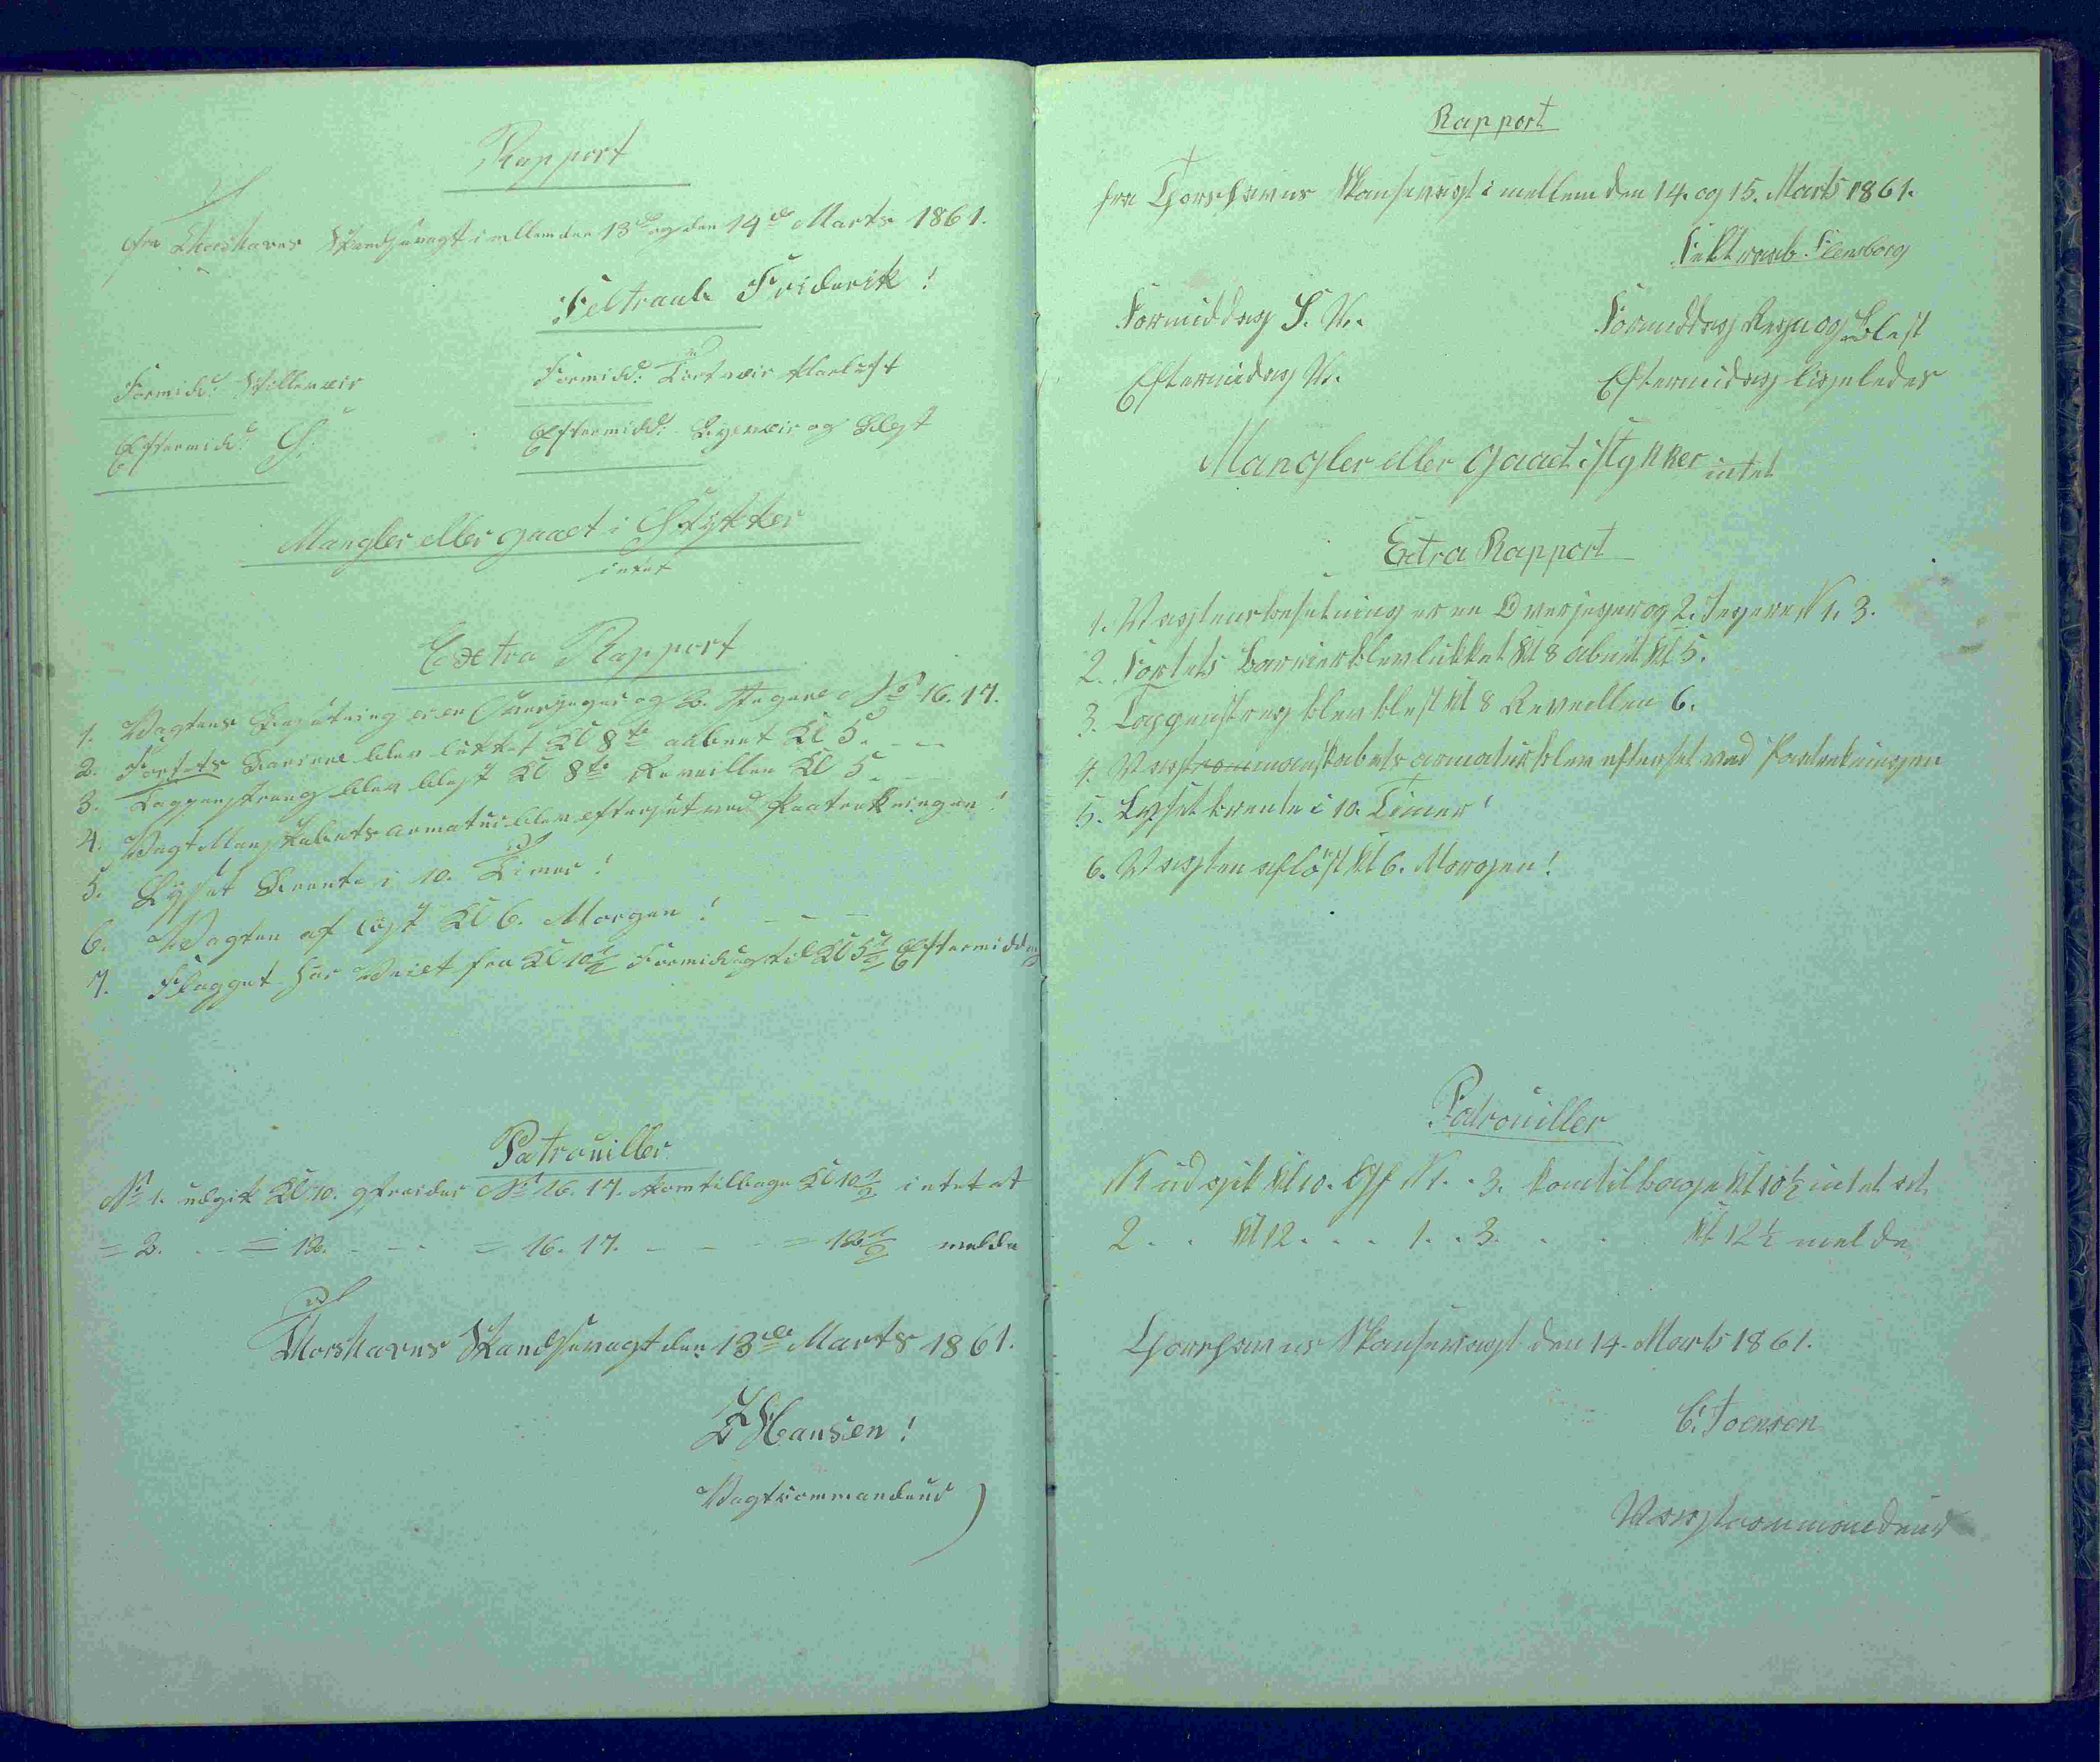 Rapport
fra Thorshavns Skandsevagt imellem den 13de og den 14de Marts 1861.
Feltraab Friderik!
Formidd: Stilleveir
Formidd: Tortveir Klarluft
Eftermidd: S.
Eftermidd: Rygveir og Blæst
Mangler eller gaaet i Stykker
intet
Extra Rapport
1. Vagtens Besætning er en Overjeger og 2. Jegere No 16. 17.
2. Fortets Bariere blev lukket Kl 8te aabnet Kl 5.
3. Tappenstreng blev blæst Kl 8te Reveillen Kl 5.
4. Vagt Manskabets armatur blev efterset ved Paatrekningen!
5. Lyset Brente i 10. Timer!
6. Vagten af löst Kl 6. Morgen!
7. Flagget har Veiet fra Kl 10½ Formidag til Kl 5½ Eftermiddag
Patrouiller
No 1. udgik Kl 10. gefreider No 16. 17. kom tilbage Kl 10½ intet at
= 2. - - = 12. - - - = 16. 17. - - - = 12½ melde
Thorshavns Skandsevagt den 13de Marts 1861.
Hansen!
Vagtcommandeur
Rapport
fra Thorshavns Skansevagt imellem den 14. og 15. Marts 1861.
Feltraab Flensborg
Formiddag S. V.
Formiddag Regn og Blest
Eftermidag V.
Eftermidag ligeledes
Mangler eller gaaet i stykker intet
Extra Rapport
1. Vagtens besetning er en Overjeger og 2. Jegere N 1. 3.
2. Fortets Barrier blev lukket Kl 8 abnet Kl 5.
3. Tappenstreg blev blest Kl 8 Reveillen 6.
4. Vagtmanskabets armatur blev efterset ved Patrekningen
5. Lyset brente i 10. Timer!
6. Vagten aflöst Kl 6. Morgen!
Patrouiller
N 1 udgik Kl 10. Gf N 1. . 3. kom tilbage Kl 10½ intet at
2 . . Kl 12 . . . 1. . 3. . . . Kl 12½ melde
Thorshavns Skansevagt den 14. Marts 1861.
C. Joensen
Vagtcommandeur